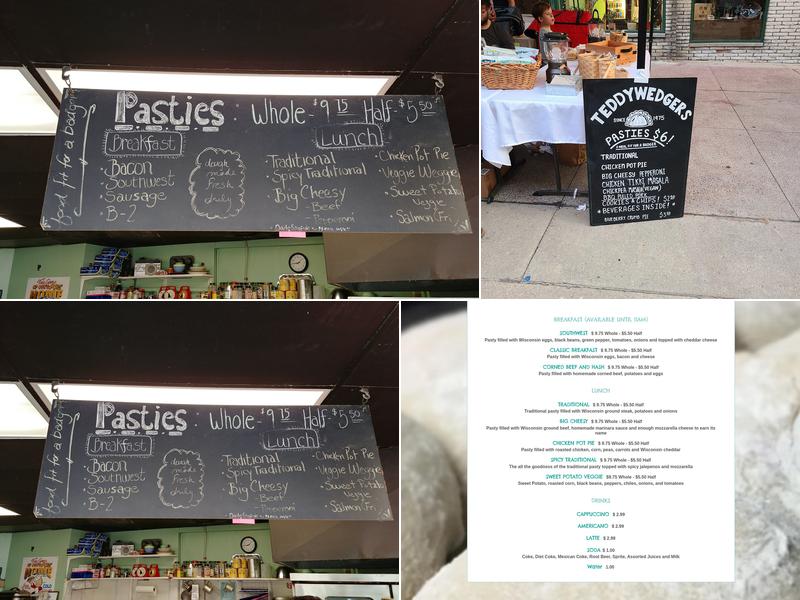 Pasties. Whole - $9 15 Half - $5 50
Good fit for a Badger
Breakfast
Bacon
Southwest
Sausage
B-2
dough
made
fresh
daily
Lunch
Traditional
Spicy Traditional
Big Cheesy
- Beef
- Pepperoni
Chicken Pot Pie
Veggie Weggie
Sweet Potato
Veggie
Salmon (Fri.
TEDDYWEDGERS
SINCE 1975
PASTIES $6!
A MEAL FIT FOR A BADGER
TRADITIONAL
CHICKEN POT PIE
BIG CHEESY PEPPERONI
CHICKEN TIKKI MASALA
CHICKPEA MASALA (VEGAN)
BIG PULLED PORK
COOKIES & CHIPS!
* BEVERAGES INSIDE! *
BLUEBERRY CRUMB PIE
Pasties. Whole - $9 15 Half - $5 50
Good fit for a Badger
Breakfast
Bacon
Southwest
Sausage
B-2
dough
made
fresh
daily
Lunch
Traditional
Spicy Traditional
Big Cheesy
- Beef
- Pepperoni
Chicken Pot Pie
Veggie Weggie
Sweet Potato
Veggie
Salmon (Fri.
BREAKFAST (AVAILABLE UNTIL 11AM)
SOUTHWEST $ 9.75 Whole - $5.50 Half
Pasty filled with Wisconsin eggs, black beans, green pepper, tomatoes, onions and topped with cheddar cheese
CLASSIC BREAKFAST $ 9.75 Whole - $5.50 Half
Pasty filled with Wisconsin eggs, bacon and cheese
CORNED BEEF AND HASH $ 9.75 Whole - $5.50 Half
Pasty filled with homemade corned beef, potatoes and eggs
LUNCH
TRADITIONAL $ 9.75 Whole - $5.50 Half
Traditional pasty filled with Wisconsin ground steak, potatoes and onions
BIG CHEESY $ 9.75 Whole - $5.50 Half
Pasty filled with Wisconsin ground beef, homemade marinara sauce and enough mozzarella cheese to earn its
name
CHICKEN POT PIE $ 9.75 Whole - $5.50 Half
Pasty filled with roasted chicken, corn, peas, carrots and Wisconsin cheddar
SPICY TRADITIONAL $ 9.75 Whole - $5.50 Half
The all the goodness of the traditional pasty topped with spicy jalapenos and mozzarella
SWEET POTATO VEGGIE $9.75 Whole - $5.50 Half
Sweet Potato, roasted corn, black beans, peppers, chiles, onions, and tomatoes
DRINKS
CAPPUCCINO $ 2.99
AMERICANO $ 2.99
LATTE $ 2.99
SODA $ 1.00
Coke, Diet Coke, Mexican Coke, Root Beer, Sprite, Assorted Juices and Milk
Water 1.00